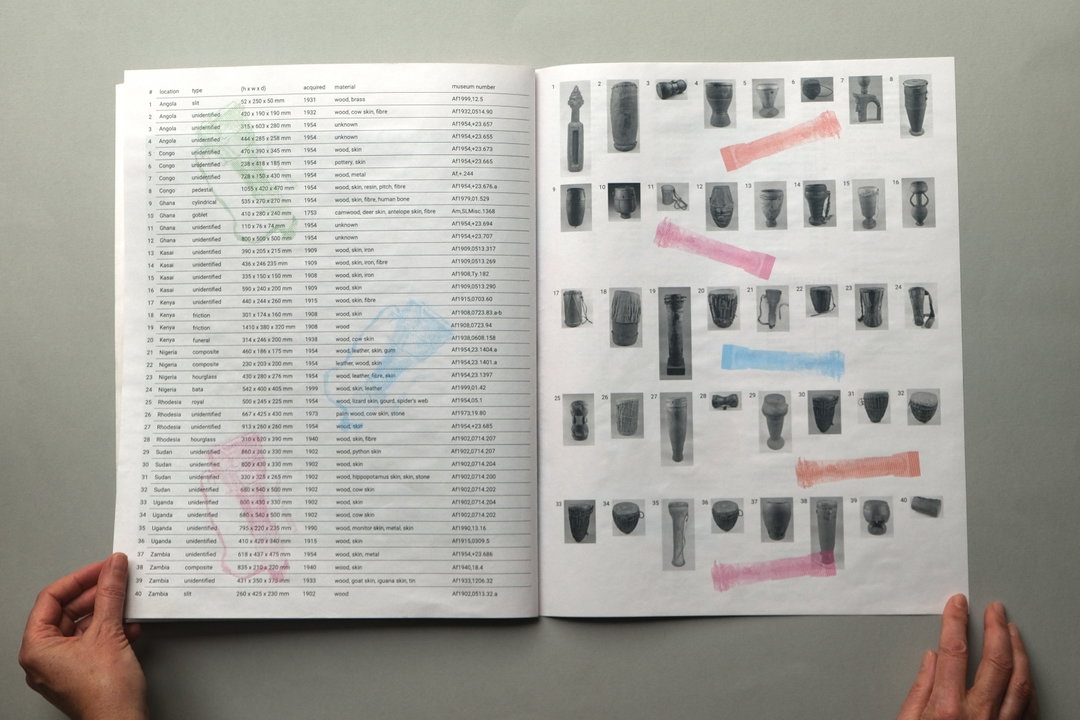 # location type (h x w x d) acquired material museum number
1 Angola slit 52 x 250 x 50 mm 1931 wood, brass Af1999,12.5
2 Angola unidentified 420 x 190 x 190 mm 1932 wood, cow skin, fibre Af1932,0514.90
3 Angola unidentified 315 x 603 x 280 mm 1954 unknown Af1954,+23.657
4 Angola unidentified 444 x 285 x 258 mm 1954 unknown Af1954,+23.655
5 Congo unidentified 470 x 390 x 345 mm 1954 wood, skin Af1954,+23.673
6 Congo unidentified 238 x 418 x 185 mm 1954 pottery, skin Af1954,+23.665
7 Congo unidentified 728 x 150 x 430 mm 1954 wood, metal Af,+.244
8 Congo pedestal 1055 x 420 x 470 mm 1954 wood, skin, resin, pitch, fibre Af1954,+23.676.a
9 Ghana cylindrical 535 x 270 x 270 mm 1954 wood, skin, fibre, human bone Af1979,01.529
10 Ghana goblet 410 x 280 x 240 mm 1753 camwood, deer skin, antelope skin, fibre Am,SLMisc.1368
11 Ghana unidentified 110 x 76 x 74 mm 1954 unknown Af1954,+23.694
12 Ghana unidentified 800 x 500 x 500 mm 1954 unknown Af1954,+23.707
13 Kasai unidentified 390 x 205 x 215 mm 1909 wood, skin, iron Af1909,0513.317
14 Kasai unidentified 436 x 246 235 mm 1909 wood, skin, iron, fibre Af1909,0513.269
15 Kasai unidentified 335 x 150 x 150 mm 1908 wood, skin, iron Af1908,Ty.182
16 Kasai unidentified 590 x 240 x 200 mm 1909 wood, skin Af1909,0513.290
17 Kenya unidentified 440 x 244 x 260 mm 1915 wood, skin, fibre Af1915,0703.60
18 Kenya friction 301 x 174 x 160 mm 1908 wood, skin Af1908,0723.83.a-b
19 Kenya friction 1410 x 380 x 320 mm 1908 wood Af1908,0723.94
20 Kenya funeral 314 x 246 x 200 mm 1938 wood, cow skin Af1938,0608.158
21 Nigeria composite 460 x 186 x 175 mm 1954 wood, leather, skin, gum Af1954,23.1404.a
22 Nigeria composite 230 x 203 x 200 mm 1954 leather, wood, skin Af1954,23.1401.a
23 Nigeria hourglass 430 x 280 x 276 mm 1954 wood, leather, fibre, skin Af1954,23.1397
24 Nigeria bata 542 x 400 x 405 mm 1999 wood, skin, leather Af1999,01.42
25 Rhodesia royal 500 x 245 x 225 mm 1954 wood, lizard skin, gourd, spider's web Af1954,05.1
26 Rhodesia unidentified 667 x 425 x 430 mm 1973 palm wood, cow skin, stone Af1973,19.80
27 Rhodesia unidentified 913 x 260 x 260 mm 1954 wood, skin Af1954,+23.685
28 Rhodesia hourglass 310 x 620 x 390 mm 1940 wood, skin, fibre Af1902,0714.207
29 Sudan unidentified 860 x 360 x 330 mm 1902 wood, python skin Af1902,0714.207
30 Sudan unidentified 800 x 430 x 330 mm 1902 wood, skin Af1902,0714.204
31 Sudan unidentified 330 x 328 x 265 mm 1902 wood, hippopotamus skin, skin, stone Af1902,0714.200
32 Sudan unidentified 680 x 540 x 500 mm 1902 wood, cow skin Af1902,0714.202
33 Uganda unidentified 800 x 430 x 330 mm 1902 wood, skin Af1902,0714.204
34 Uganda unidentified 680 x 540 x 500 mm 1902 wood, cow skin Af1902,0714.202
35 Uganda unidentified 795 x 220 x 235 mm 1990 wood, monitor skin, metal, skin Af1990,13.16
36 Uganda unidentified 410 x 420 x 340 mm 1915 wood, skin Af1915,0309.5
37 Zambia unidentified 618 x 437 x 475 mm 1954 wood, skin, metal Af1954,+23.686
38 Zambia composite 835 x 210 x 220 mm 1940 wood, skin Af1940,18.4
39 Zambia unidentified 431 x 350 x 375 mm 1933 wood, goat skin, iguana skin, tin Af1933,1206.32
40 Zambia slit 260 x 425 x 230 mm 1902 wood Af1902,0513.32.a
1 2 3 4 5 6 7 8
9 10 11 12 13 14 15 16
17 18 19 20 21 22 23 24
25 26 27 28 29 30 31 32
33 34 35 36 37 38 39 40